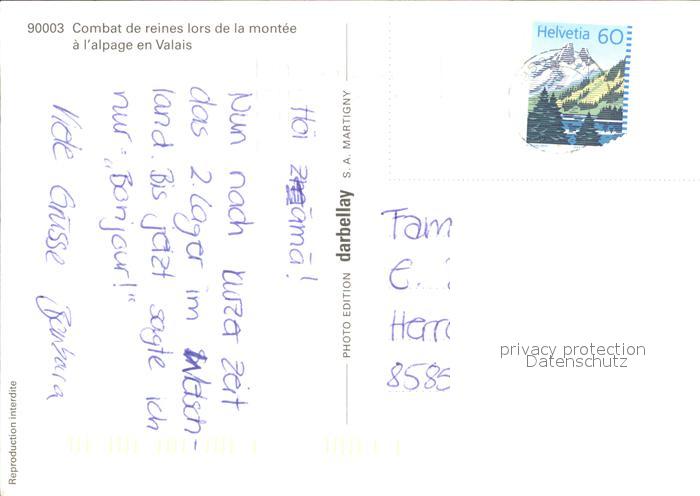 90003 Combat de reines lors de la montée
à l'alpage en Valais
Hoi zämä!
Nun nach kurza Zeit
das 2. Lager im Welsch-
land. Bis jetzt sagte ich
nur: „Bonjour!"
Viele Grüsse Barbara
PHOTO EDITION darbellay S. A. MARTIGNY
Reproduction interdite
Helvetia 60
Fam
E.
8585
privacy protection
Datenschutz